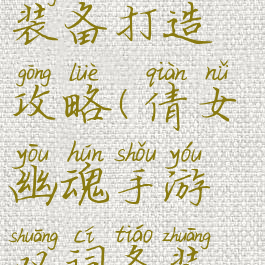 装备打造
gōng lüè qiàn nǚ
攻略(倩女
yōu hún shǒu yóu
幽魂手游
shuāng cí tiáo zhuāng
双词条装